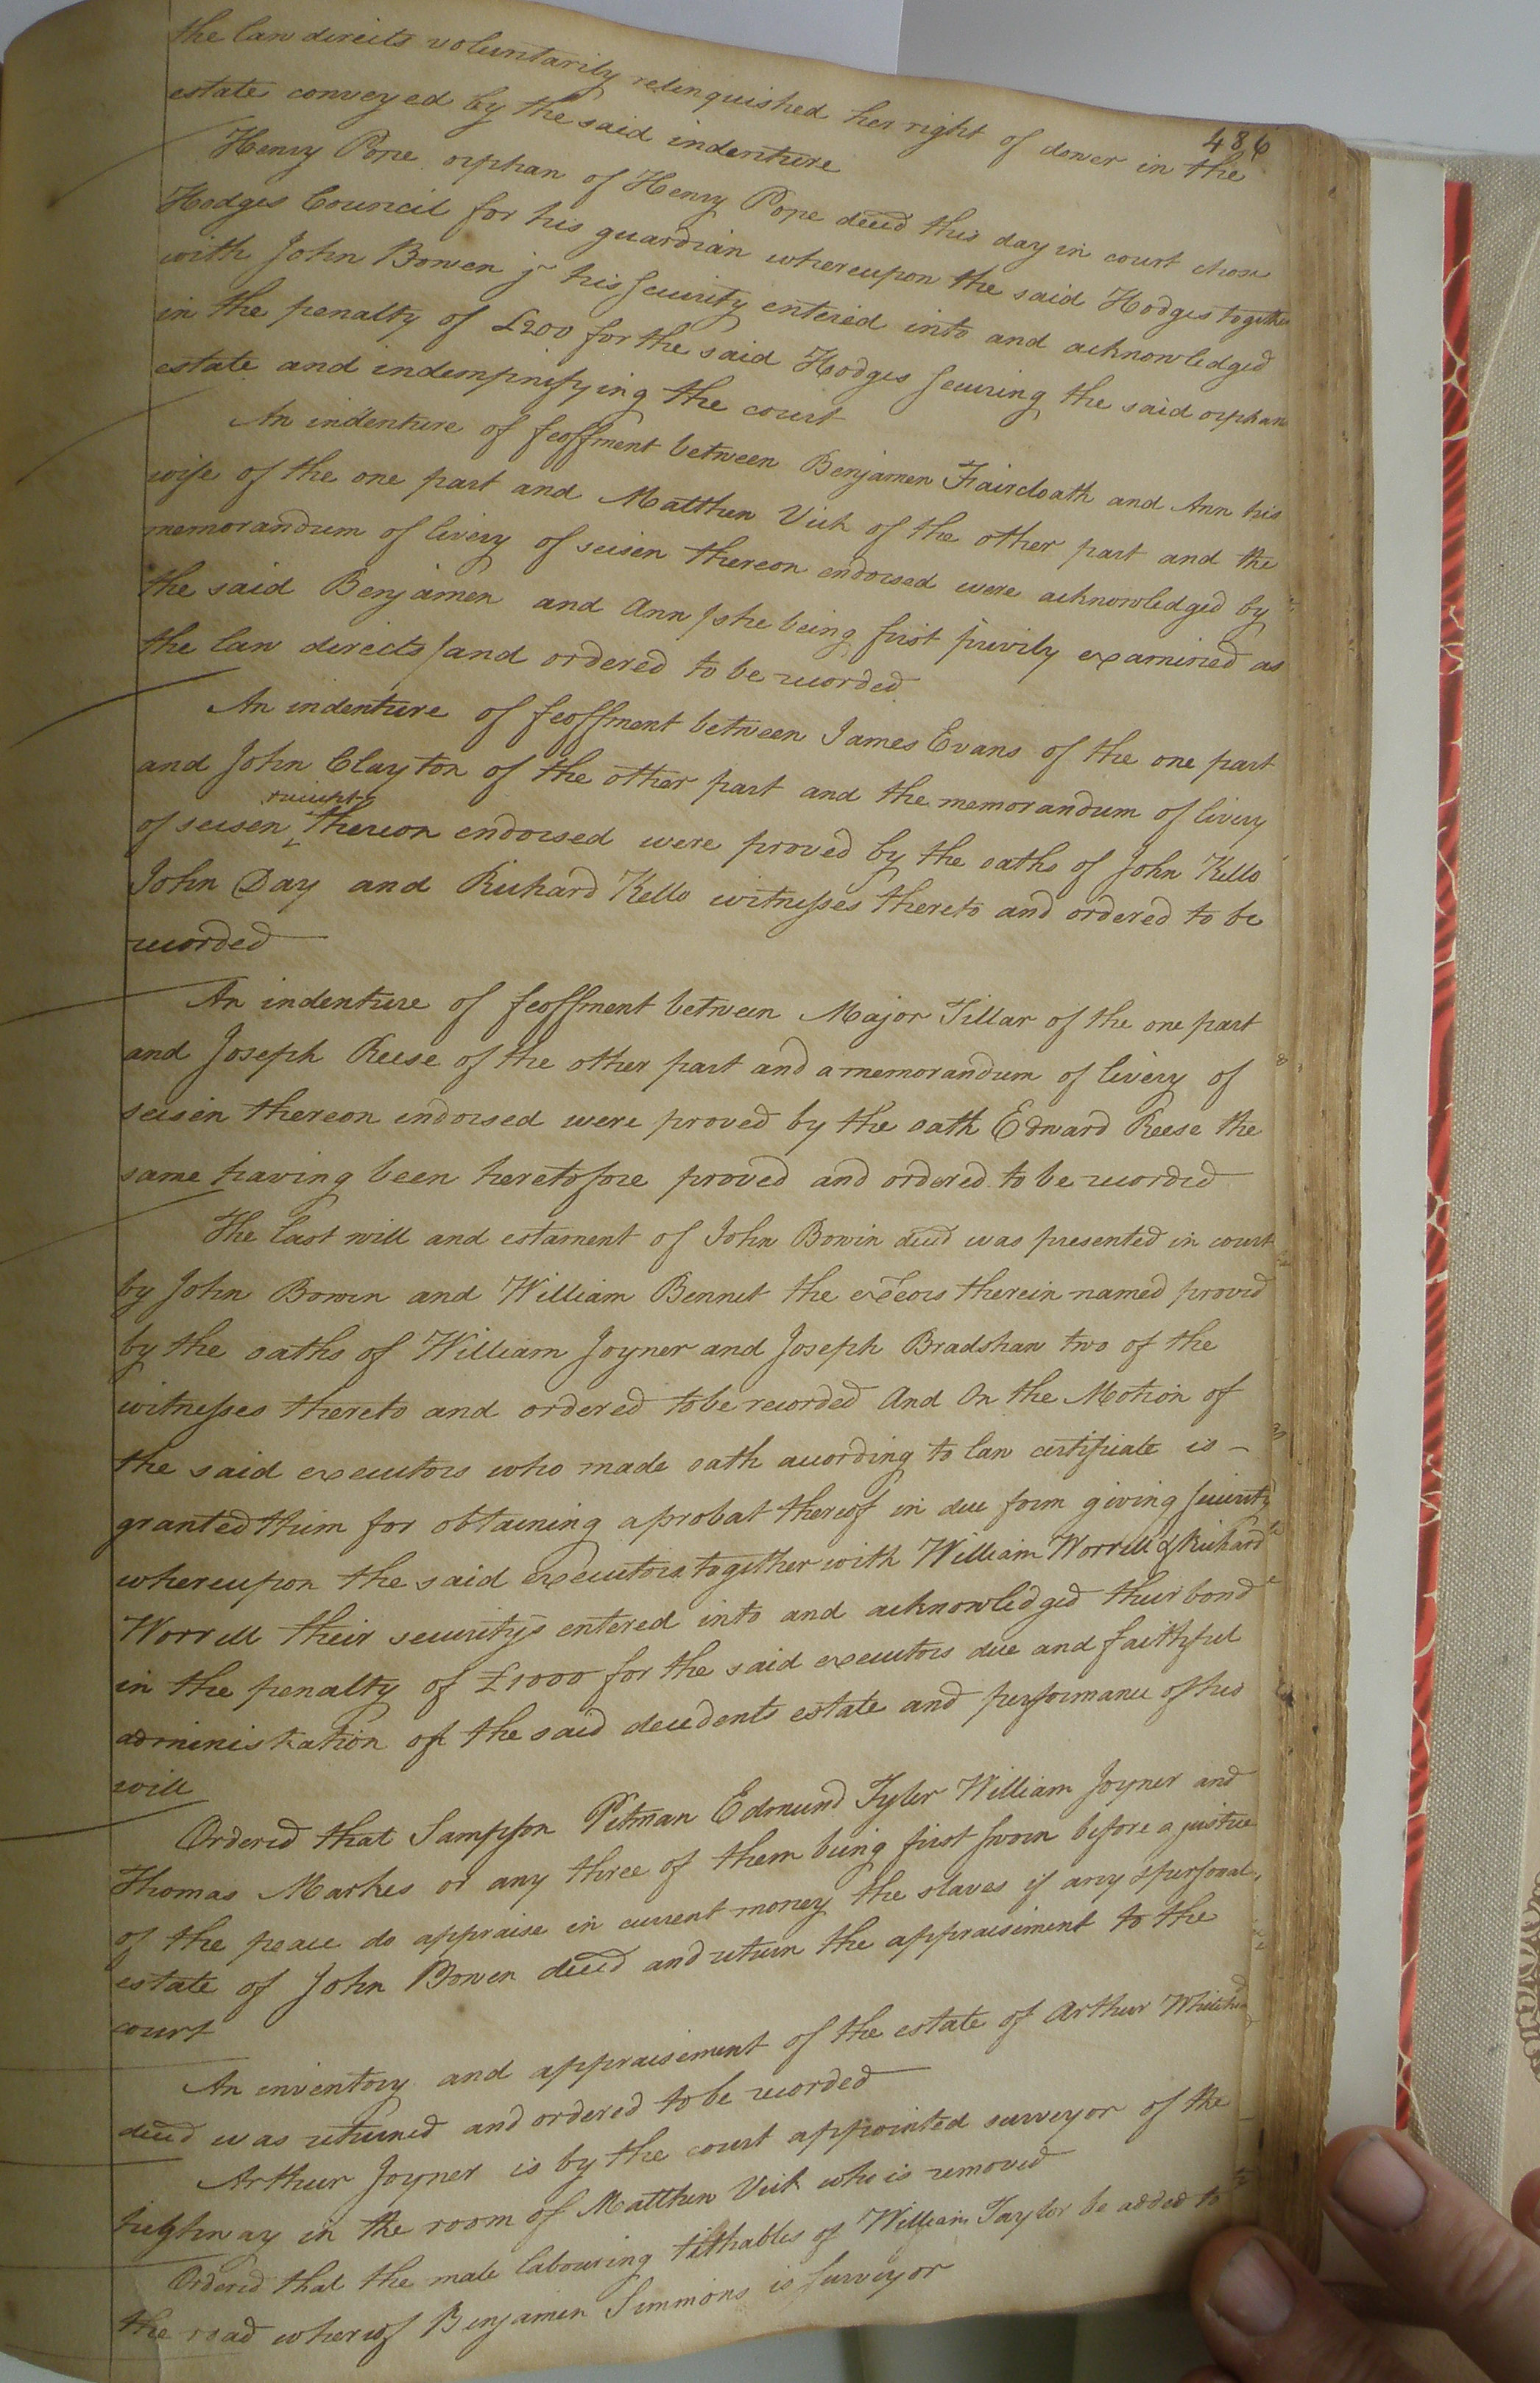 486
the law directs voluntarily relinquished her right of dower in the
estate conveyed by the said indenture
Henry Pope orphan of Henry Pope decd this day in court chose
Hodges Council for his guardian whereupon the said Hodges together
with John Bowen jr his security entered into and acknowledged
in the penalty of £200 for the said Hodges securing the said orphans
estate and indempnifying the court
An indenture of feoffment between Benjamen Faircloath and Ann his
wife of the one part and Matthew Vick of the other part and the
memorandum of livery of seisen thereon endorsed were acknowledged by
the said Benjamen and Ann /she being first privily examined as
the law directs/ and ordered to be recorded
An indenture of feoffment between James Evans of the one part
and John Clayton of the other part and the memorandum of livery
receipt
of seisen thereon endorsed were proved by the oaths of John Kello
John Day and Richard Kello witnesses thereto and ordered to be
recorded
An indenture of feoffment between Major Tillar of the one part
and Joseph Reese of the other part and a memorandum of livery of
seisin thereon endorsed were proved by the oath Edward Reese the
same having been heretofore proved and ordered to be recorded
The last will and estament of John Bowin decd was presented in court
by John Bowen and William Bennet the execors therein named proved
by the oaths of William Joyner and Joseph Bradshaw two of the
witnesses thereto and ordered to be recorded And On the Motion of
the said executors who made oath according to law certificate is -
granted them for obtaining a probat thereof in due form giving security
whereupon the said executors together with William Worrell & Richard
Worrell their securitys entered into and acknowledged their bond
in the penalty of £1000 for the said executors due and faithful
administration of the said decedents estate and performance of his
will
Ordered that Sampson Pitman Edmund Tyler William Joyner and
Thomas Markes or any three of them being first sworn before a justice
of the peace do appraise in current money the slaves if any & personal
estate of John Bowen decd and return the appraisement to the
court
An inventory and appraisement of the estate of Arthur Whitehead
decd was returned and ordered to be recorded
Arthur Joyner is by the court appointed surveyor of the
highway in the room of Matthew Vick who is removed
Ordered that the male labouring tithables of William Taylor be added to
the road whereof Benjamin Simmons is surveyor